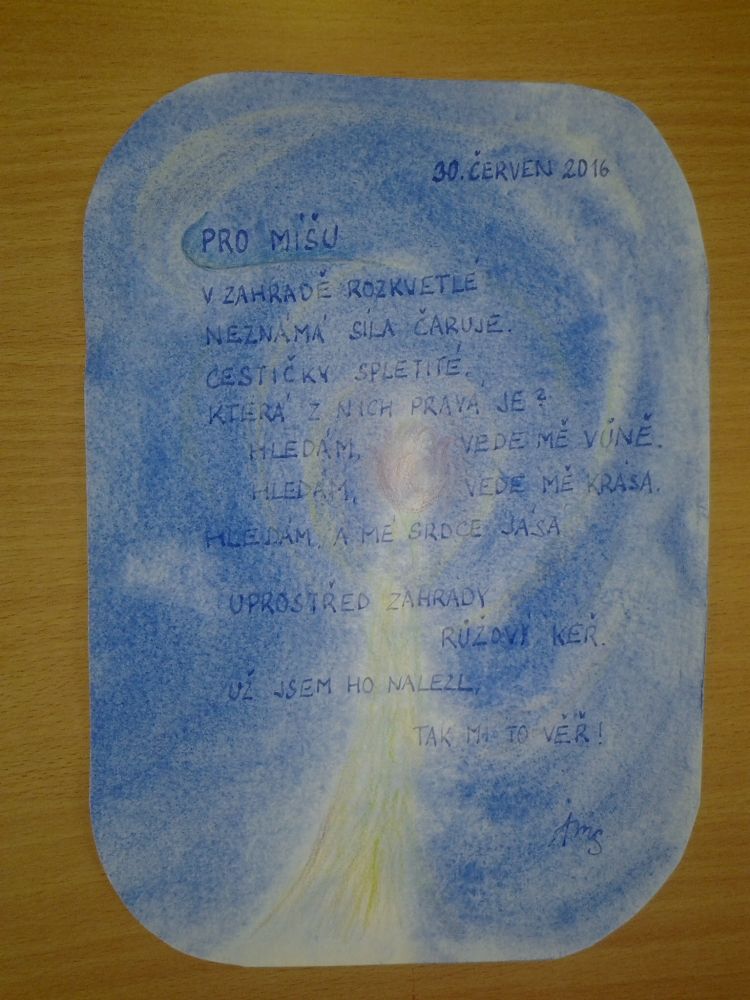 30. ČERVEN 2016
PRO MÍŠU
V ZAHRADĚ ROZKVETLÉ
NEZNÁMÁ SÍLA ČARUJE.
CESTIČKY SPLETITÉ,
KTERÁ Z NICH PRAVÁ JE?
HLEDÁM, VEDE MĚ VŮNĚ.
HLEDÁM, VEDE MĚ KRÁSA.
HLEDÁM, A MÉ SRDCE JÁSÁ
UPROSTŘED ZAHRADY
RŮŽOVÝ KEŘ.
UŽ JSEM HO NALEZL,
TAK MI TO VĚŘ!